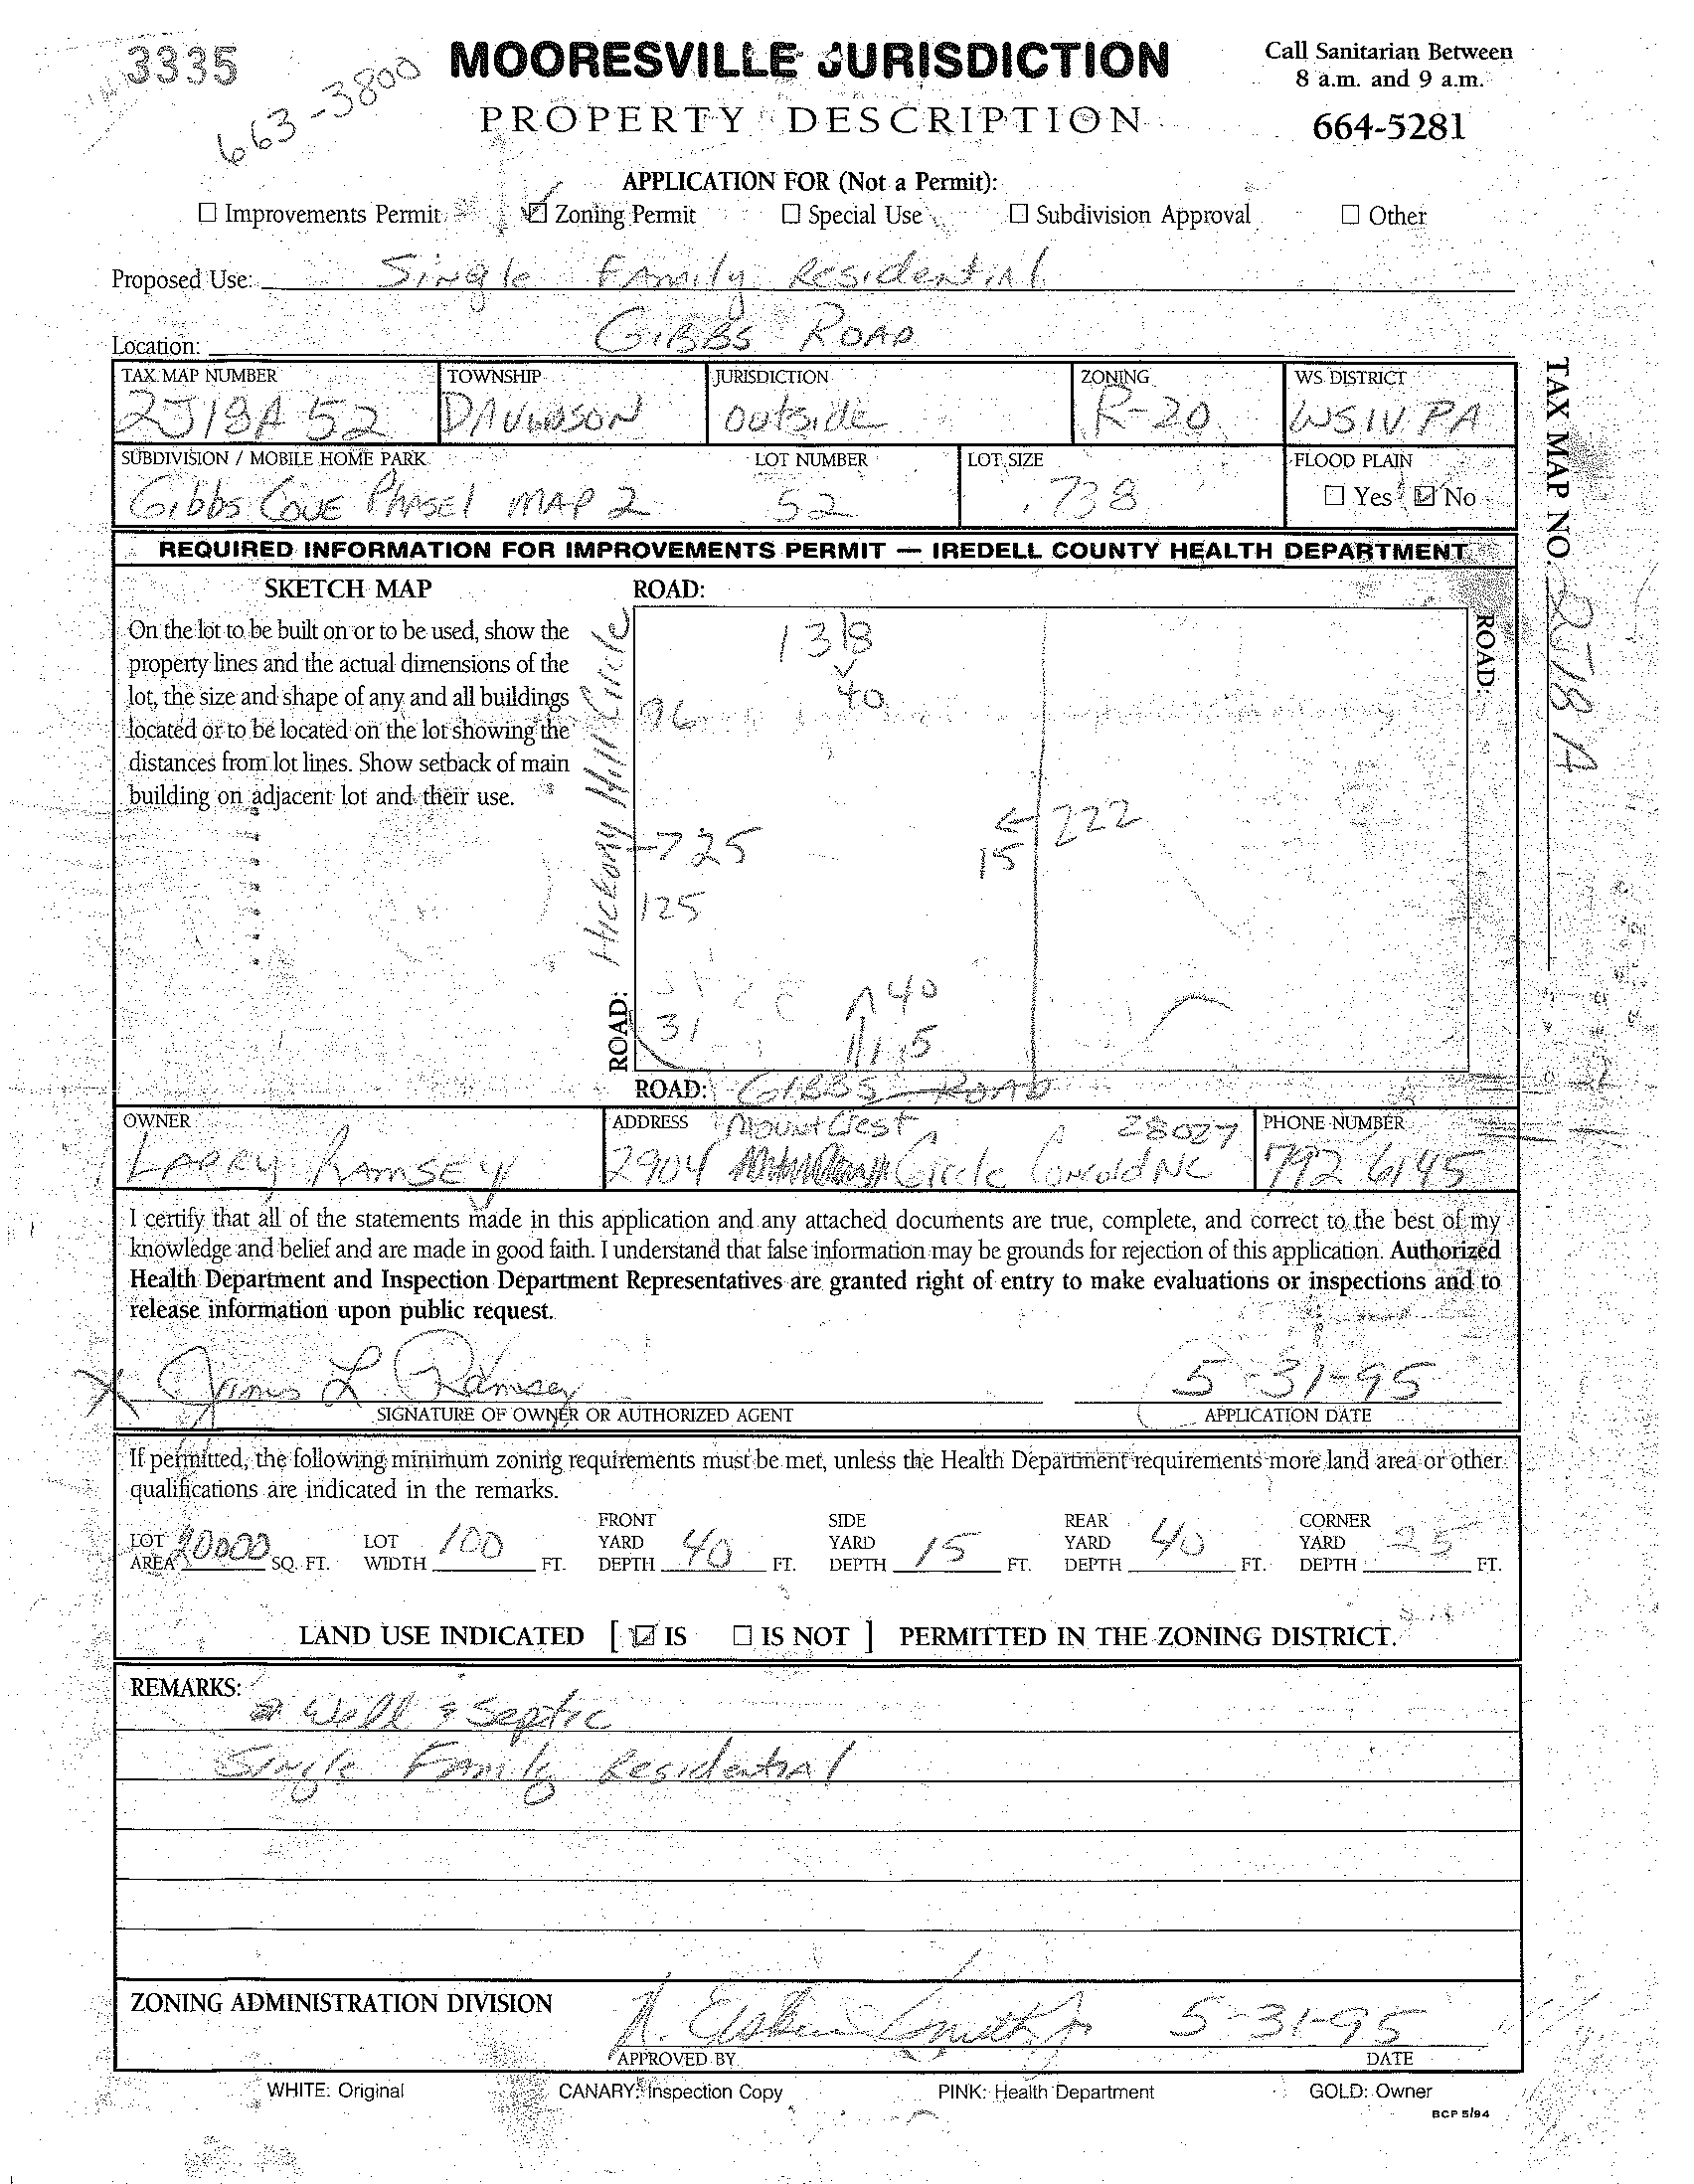 3335
663-3800
MOORESVILLE JURISDICTION
PROPERTY DESCRIPTION
Call Sanitarian Between
8 a.m. and 9 a.m.
664-5281
APPLICATION FOR (Not a Permit):
☐ Improvements Permit ☑ Zoning Permit ☐ Special Use ☐ Subdivision Approval ☐ Other
Proposed Use: Single Family Residential
Location: Gibbs Road
TAX MAP NUMBER TOWNSHIP JURISDICTION ZONING WS DISTRICT
2J18A 52 DAVIDSON outside R-20 WSIV PA
SUBDIVISION / MOBILE HOME PARK LOT NUMBER LOT SIZE FLOOD PLAIN
Gibbs Cove Phase 1 MAP 2 52 .738 ☐ Yes ☑ No
TAX MAP NO. 2J18A
REQUIRED INFORMATION FOR IMPROVEMENTS PERMIT — IREDELL COUNTY HEALTH DEPARTMENT
SKETCH MAP
On the lot to be built on or to be used, show the
property lines and the actual dimensions of the
lot, the size and shape of any and all buildings
located or to be located on the lot showing the
distances from lot lines. Show setback of main
building on adjacent lot and their use.
ROAD:
138
40
96
ROAD:
222
25
15
125
40
31
115
ROAD: Hickory Hill Circle
ROAD: GIBBS ROAD
OWNER ADDRESS PHONE NUMBER
LARRY RAMSEY 2904 Mount Crest Circle Concord NC 28027 792 6145
I certify that all of the statements made in this application and any attached documents are true, complete, and correct to the best of my
knowledge and belief and are made in good faith. I understand that false information may be grounds for rejection of this application. Authorized
Health Department and Inspection Department Representatives are granted right of entry to make evaluations or inspections and to
release information upon public request.
X James L Ramsey 5-31-95
SIGNATURE OF OWNER OR AUTHORIZED AGENT APPLICATION DATE
If permitted, the following minimum zoning requirements must be met, unless the Health Department requirements more land area or other
qualifications are indicated in the remarks.
LOT AREA 20000 SQ. FT. LOT WIDTH 100 FT. FRONT YARD DEPTH 40 FT. SIDE YARD DEPTH 15 FT. REAR YARD DEPTH 40 FT. CORNER YARD DEPTH 25 FT.
LAND USE INDICATED [ ☑ IS ☐ IS NOT ] PERMITTED IN THE ZONING DISTRICT.
REMARKS:
Well & Septic
Single Family Residential
ZONING ADMINISTRATION DIVISION
Smith Jr 5-31-95
APPROVED BY DATE
WHITE: Original CANARY: Inspection Copy PINK: Health Department GOLD: Owner
BCP 5/94